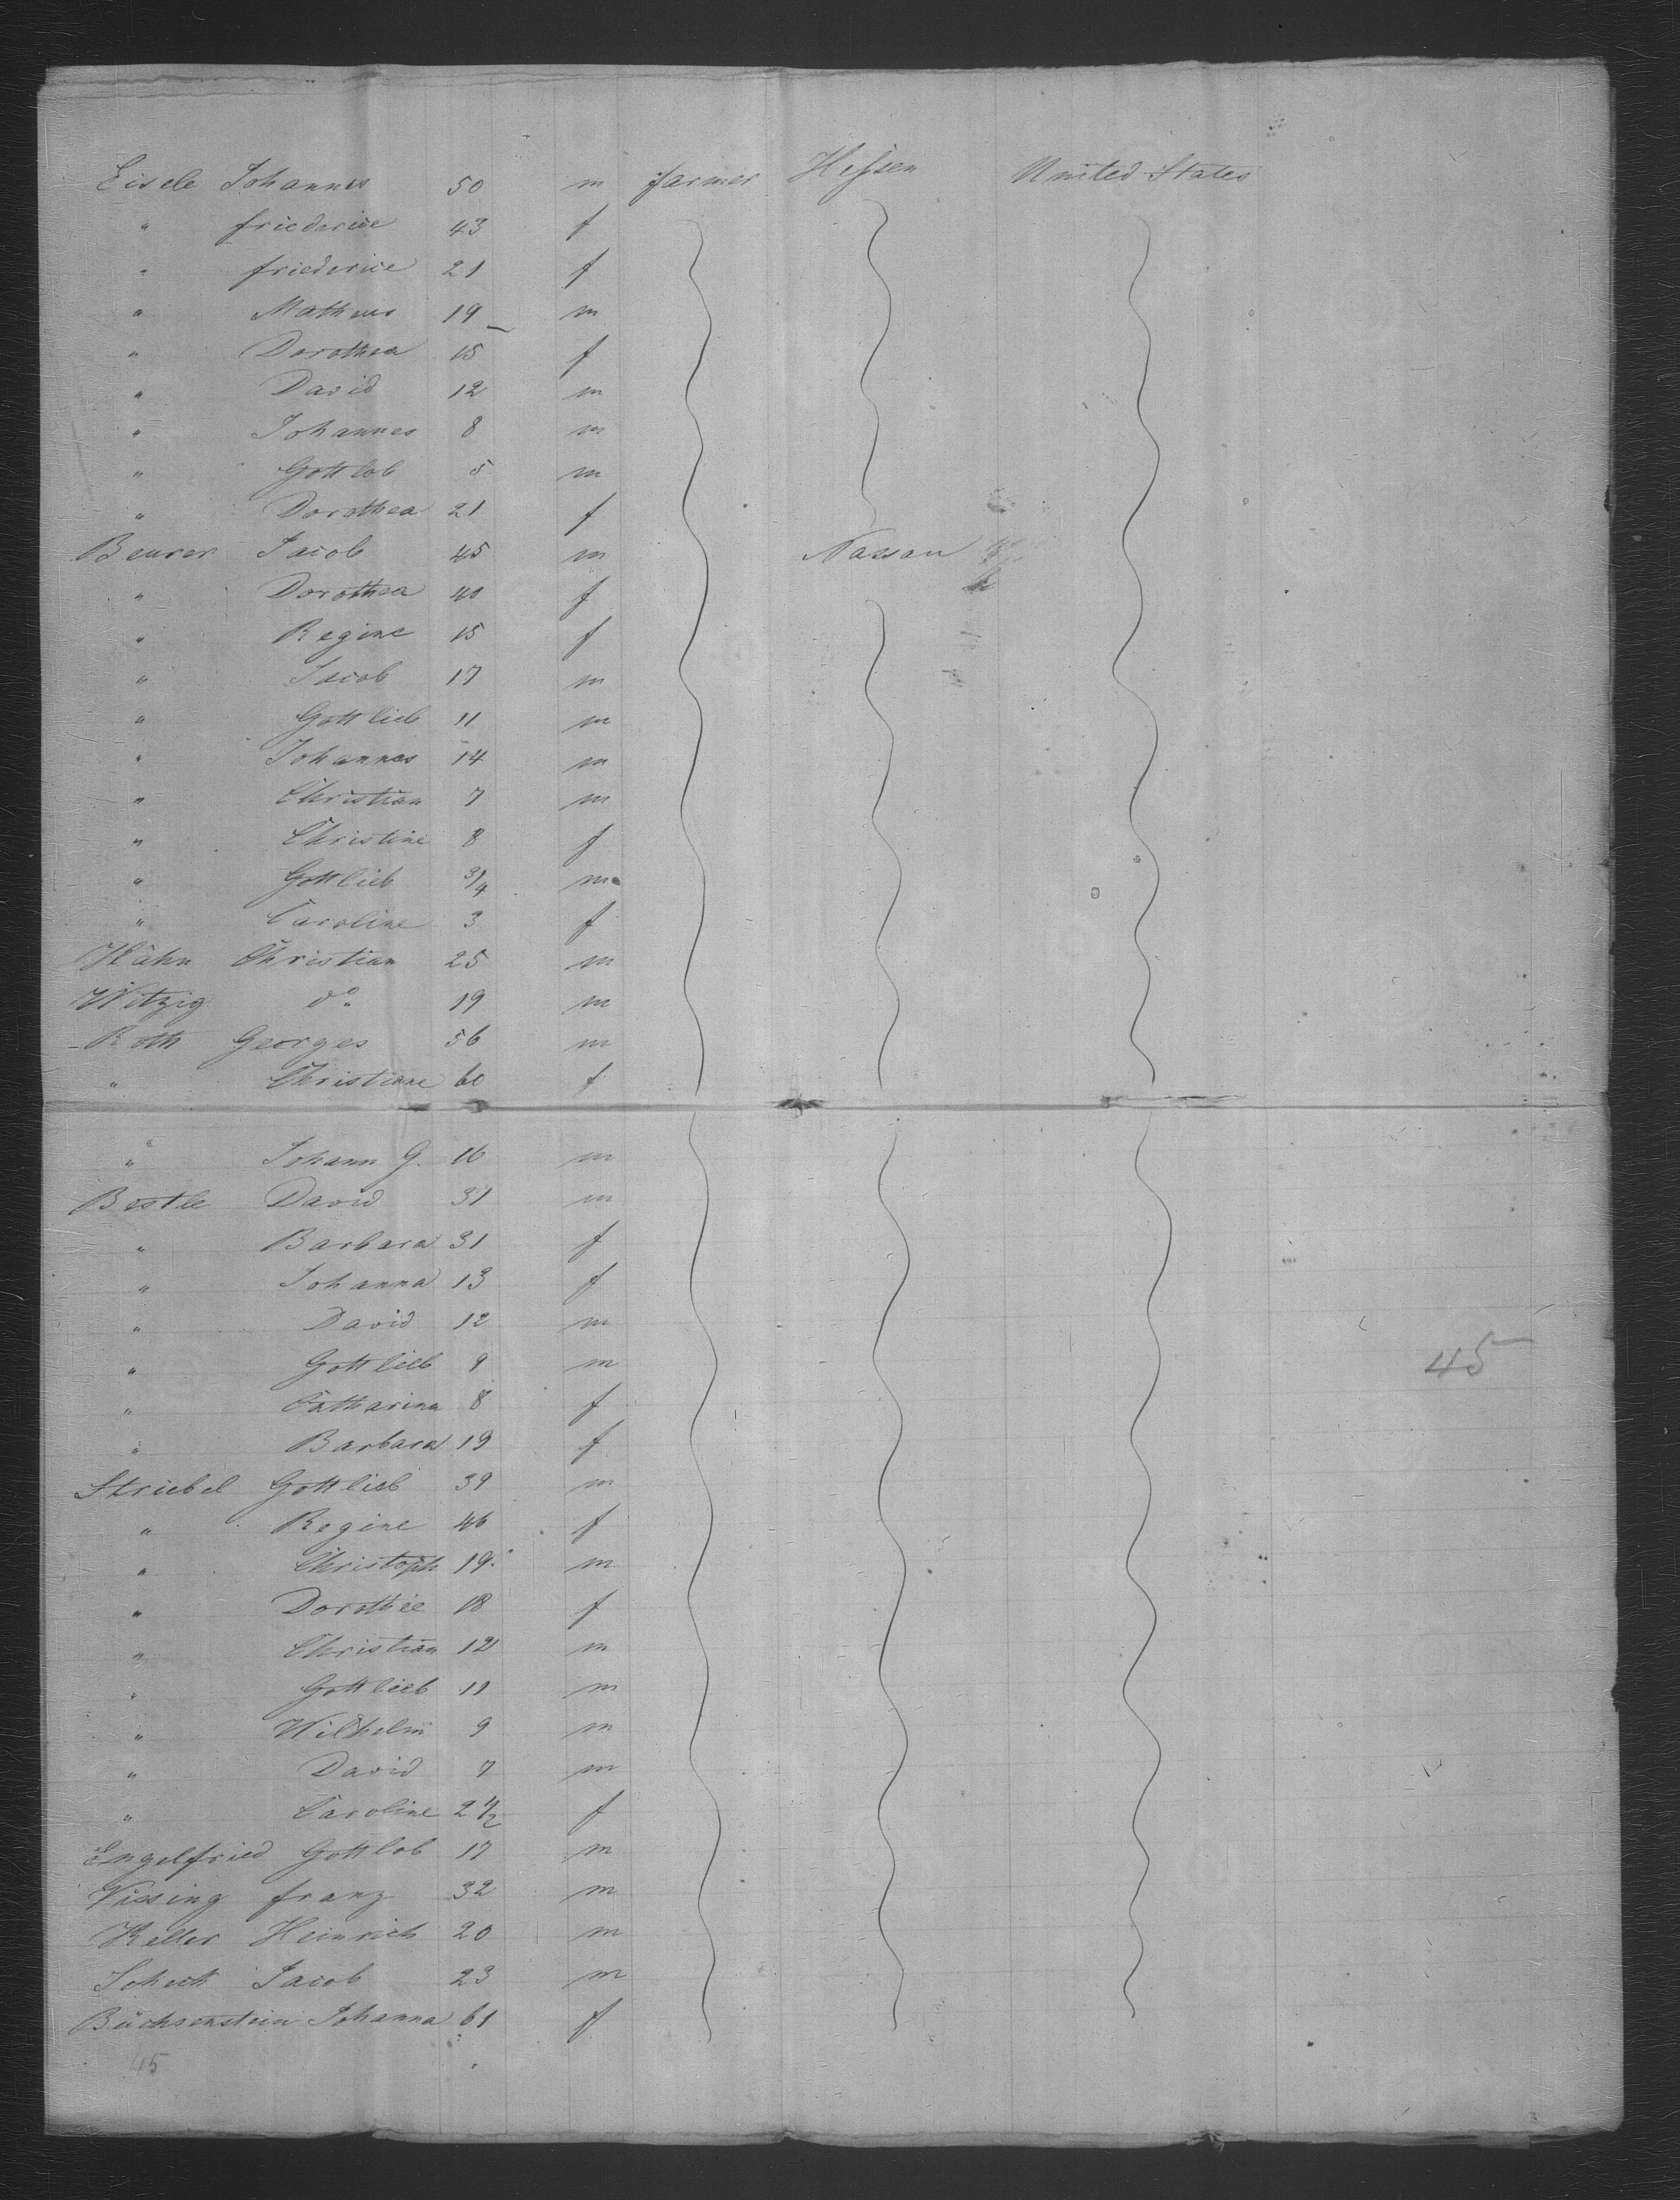 Eisele Johannes 50 m farmer Hessen United States
" friederice 43 f
" friederice 21 f
" Matheus 19 m
" Dorothea 15 f
" David 12 m
" Johannes 8 m
" Gottlob 5 m
" Dorothea 21 f
Beurer Jacob 45 m Nassau
" Dorothea 40 f
" Regine 15 f
" Jacob 17 m
" Gottlieb 11 m
" Johannes 14 m
" Christian 7 m
" Christine 8 f
" Gottlieb 3/4 m
" Caroline 3 f
Hähn Christian 25 m
Witzig do 19 m
Roth Georges 56 m
" Christiane 60 f
" Johann G. 16 m
Bestle David 31 m
" Barbara 31 f
" Johanna 13 f
" David 12 m
" Gottlieb 9 m
45
" Catharina 8 f
" Barbara 19 f
Striebel Gottlieb 39 m
" Regine 46 f
" Christoph 19 m
" Dorothée 18 f
" Christian 12 m
" Gottlieb 11 m
" Wilhelm 9 m
" David 7 m
" Caroline 2 1/2 f
Engelfried Gottlob 17 m
Viesing franz 32 m
Keller Heinrich 20 m
Scheck Jacob 23 m
Büchsenstein Johanna 61 f
45